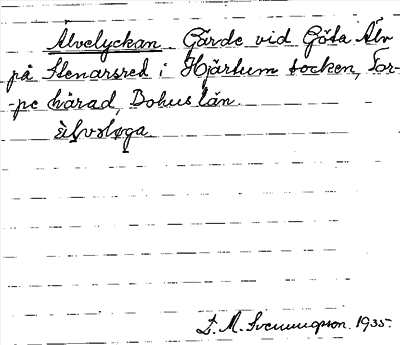 Älvelyckan. Gärde vid Göta Älv
på Stenarsred i Hjärtum socken, Tor-
-pe härad, Bohus län.
D. M. Svenningson. 1935.